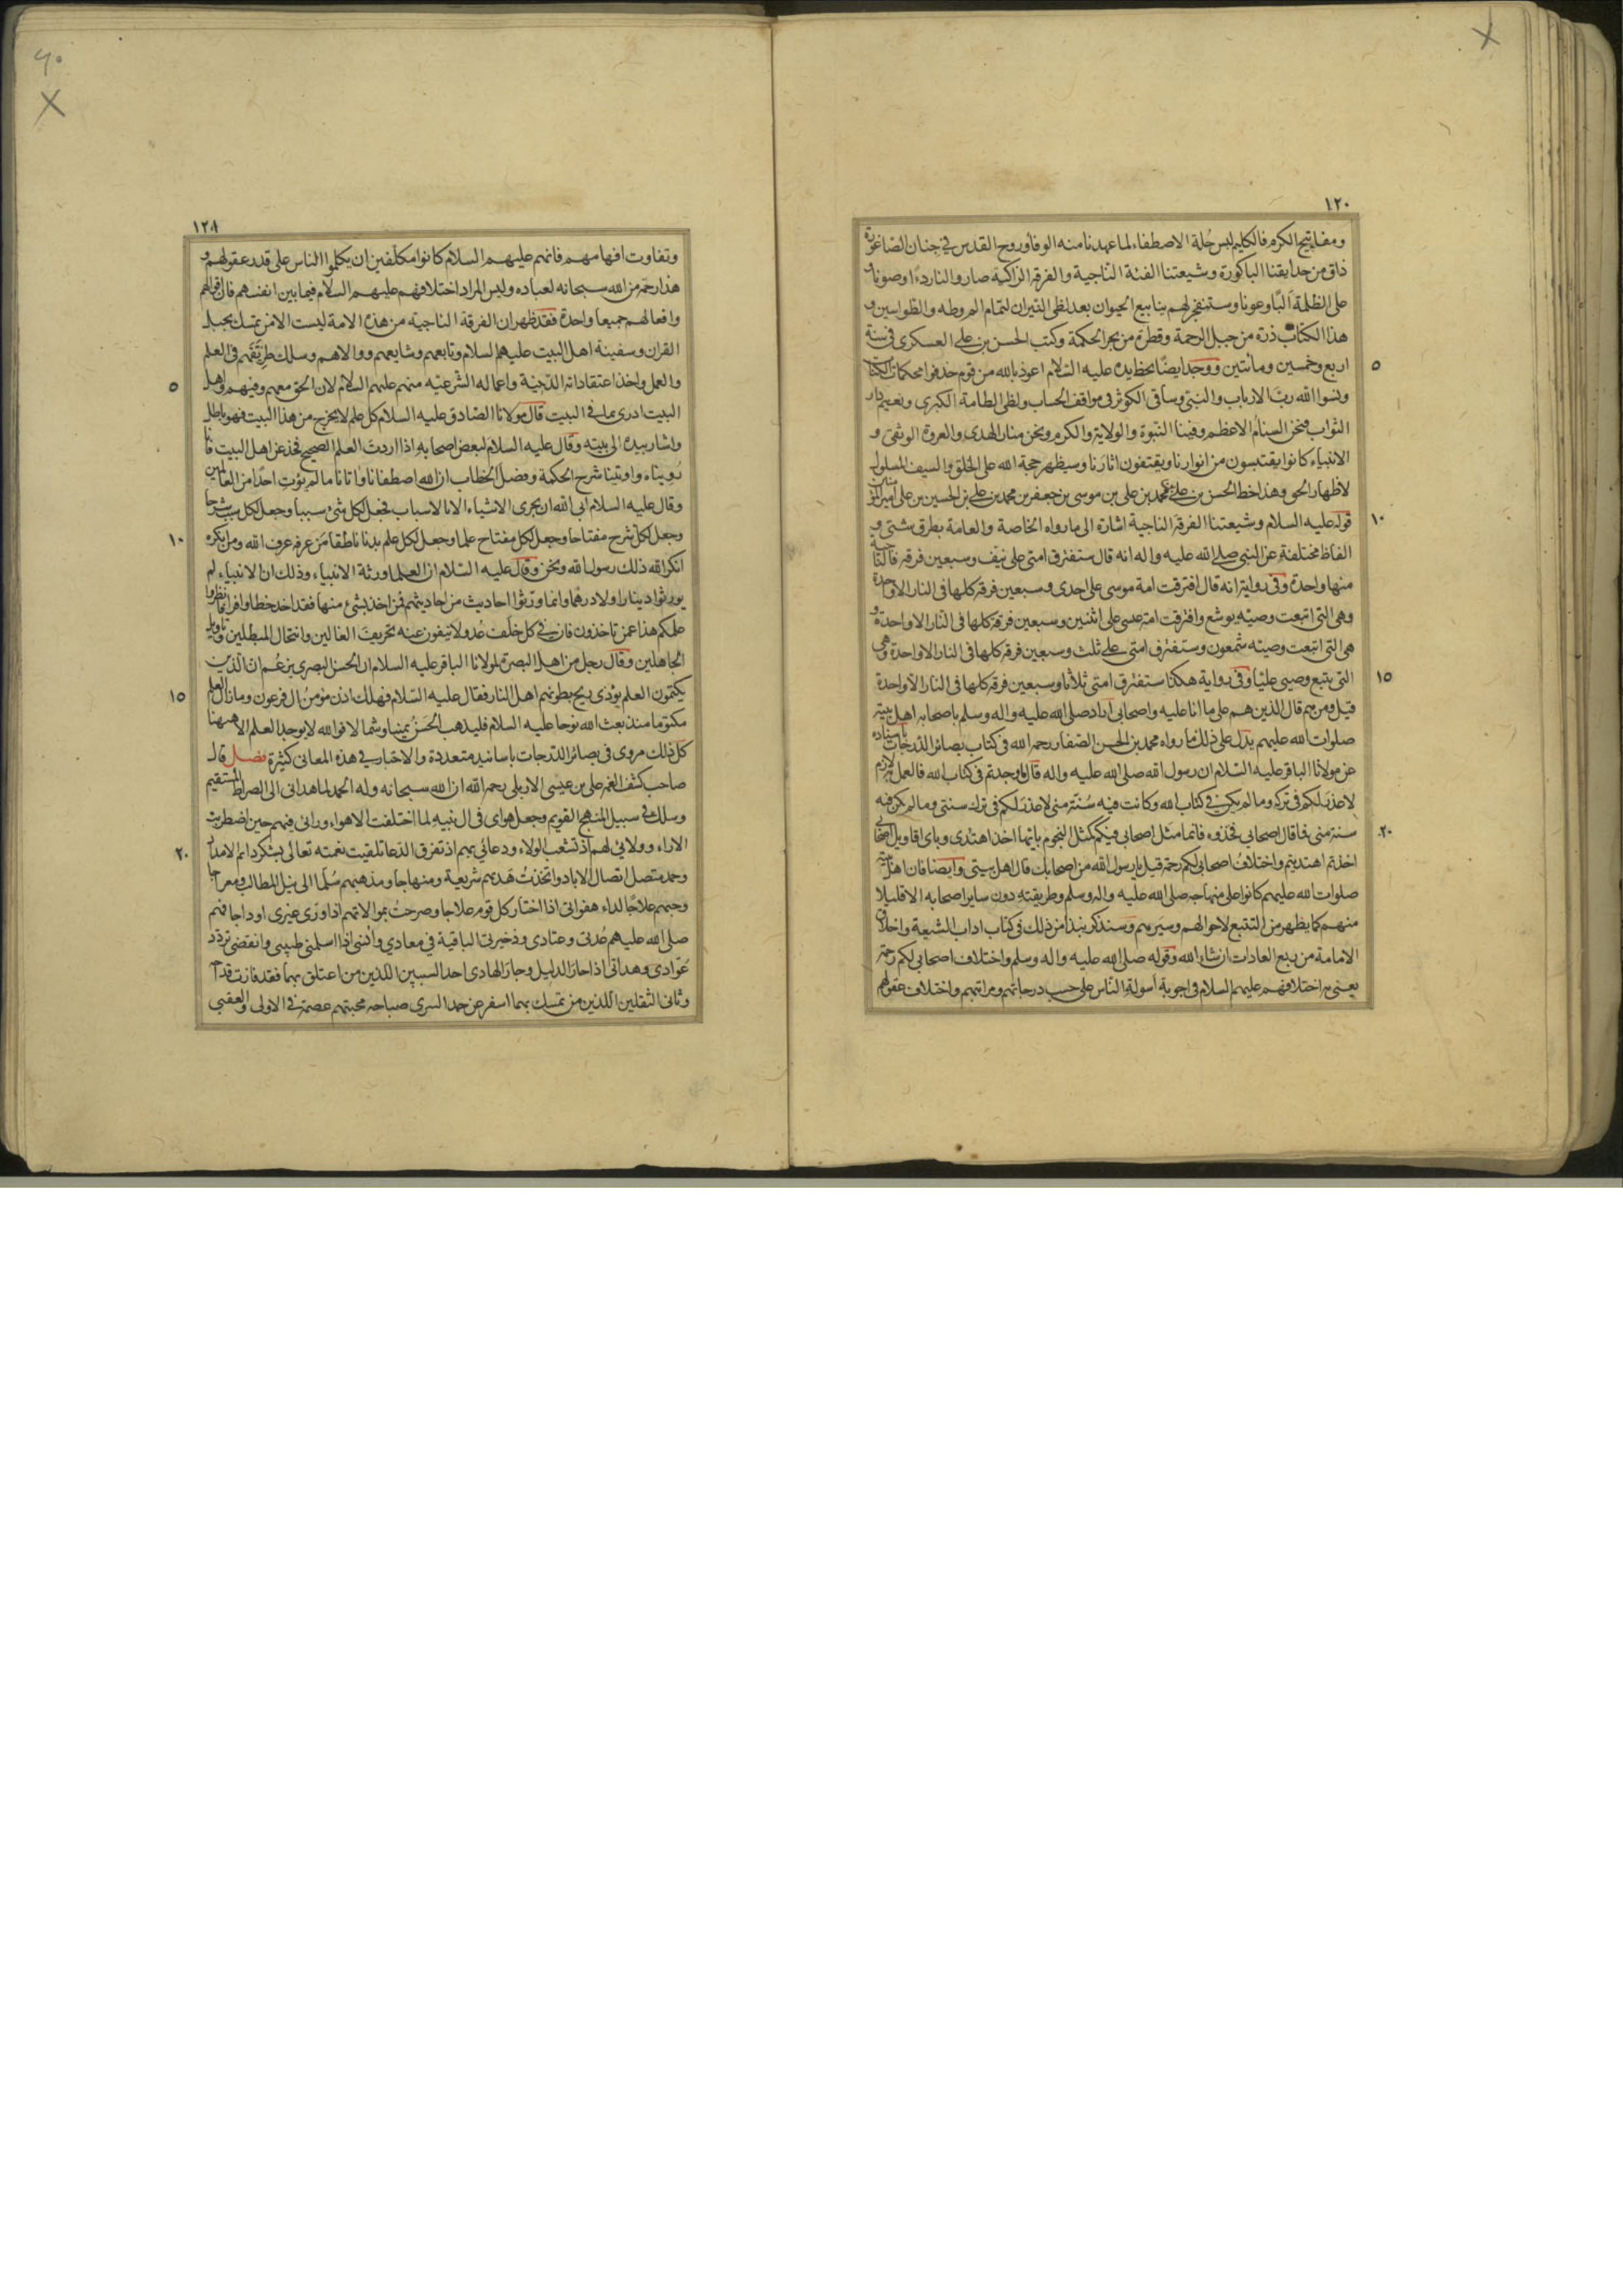 ١٢٠
ومفاتيح الكرم فالكليم لبس حُلة الاصطفاء لما عهدنا منه الوفاء وروح القدس في جنان الصاغورة
ذاق من حدايقنا الباكورة وشيعتنا الفئة النّاجية والفرقة الزاكية صاروا لنا ردءًا وصونا و
على الظلمة اَلبًا وعونا وستنفجر لهم ينابيع الحيوان بعد لظى النيران لتمام الم وطه والطواسين و
هذا الكتاب ذرة من جبل الرحمة وقطرة من بحر الحكمة وكتب الحسن بن علي العسكرى في سنة
٥
اربع وخمسين ومأتين ووجد ايضًا بخط يده عليه السّلام اعوذ بالله من قوم حذفوا محكمات الكتاب
ونسوا الله ربّ الارباب والنبيّ وساقى الكوثر في مواقف الحساب ولظى الطامة الكبرى ونعيم دار
الثواب فنحن السنام الاعظم وفينا النبوة والولاية والكرم ونحن منار الهدى والعروة الوثقى و
الانبياء كانوا يقتبسون من انوارنا ويقتفون اثارنا وسيظهر حجة الله على الخلق والسيف المسلول
لاظهار الحق وهذا خط الحسن بن علي بن محمد بن على بن موسى بن جعفر بن محمد بن علي بن الحسين بن على امير المؤمنين
١٠
قوله عليه السلام وشيعتنا الفرقة الناجية اشارة الى ما رواه الخاصة والعامة بطرق شتى و
الفاظ مختلفة عن النبي صلى الله عليه واله انه قال ستفترق امتى على نيف وسبعين فرقه فالناجية
منها واحدة وفى رواية انه قال افترقت امة موسى على احدى وسبعين فرقة كلها فى النار الا واحدة
وهى التى اتبعت وصيّه يوشع وافترقت امة عيسى على اثنين وسبعين فرقة كلها فى النار الا واحدة و
هى التى اتبعت وصيّه شمعون وستفترق امتى على ثلث وسبعين فرقة كلها فى النار الا واحدة وهى
١٥
التى يتبع وصيى عليّا وفى رواية هكذا ستفترق امتى ثلاثا وسبعين فرقة كلها فى النار الا واحدة
قيل ومن هم قال الذين هم على ما انا عليه واصحابى اراد صلى الله عليه واله وسلم باصحابه اهل بيته
صلوات الله عليهم يدل على ذلك ما رواه محمد بن الحسن الصفار رحمه الله فى كتاب بصائر الدرجات باسناده
عن مولانا الباقر عليه السّلام ان رسول الله صلى الله عليه واله قال ما وجدتم فى كتاب الله فالعمل به لازم
لا عذر لكم فى تركه وما لم يكن فى كتاب الله وكانت فيه سُنّة منى لا عذر لكم فى ترك سنتى وما لم يكن فيه
٢٠
سنة منى فما قال اصحابى فخذوه فانما مثل اصحابى فيكم كمثل النجوم بايّها اخذ اهتدى وباى اقاويل اصحابى
اخذتم اهتديتم واختلاف اصحابى لكم رحمة قيل يا رسول الله من اصحابك قال اهل بيتى وايضا فان اهل بيته
صلوات الله عليهم كانوا على منهاجه صلى الله عليه واله وسلم وطريقته دون ساير اصحابه الا قليلا
منهم كما يظهر من التتبع لاحوالهم وسيرهم وسنذكر نبذا من ذلك فى كتاب اداب الشيعة واخلاق
الامامة من ربع العادات ان شاء الله وقوله صلى الله عليه واله وسلم واختلاف اصحابى لكم رحمة
يعنى به اختلافهم عليهم السلام فى اجوبة اسولة الناس على حسب درجاتهم ومراتبهم واختلاف عقولهم
٦٠
وتفاوت افهامهم فانهم عليهم السلام كانوا مكلفين ان يكلموا الناس على قدر عقولهم و
هذا رحمة من الله سبحانه لعباده وليس المراد اختلافهم عليهم السلام فيما بين انفسهم فان اقوالهم
وافعالهم جميعا واحدة فقد ظهر ان الفرقة الناجية من هذه الامة ليست الا من تمسك بحبل
القران وسفينة اهل البيت عليهم السلام وتابعهم وشايعهم ووالاهم وسلك طريقتهم فى العلم
٥
والعمل واخذ اعتقاداته الدينية واعماله الشرعيّه منهم عليهم السلام لان الحق معهم وفيهم واهل
البيت ادرى بما فى البيت قال مولانا الصّادق عليه السلام كل علم لا يخرج من هذا البيت فهو باطل
واشار بيده الى بيته وقال عليه السلام لبعض اصحابه اذا اردت العلم الصحيح فخذ عن اهل البيت فانا
رُويناه واوتينا شرح الحكمة وفصل الخطاب ان الله اصطفانا واتانا ما لم يؤت احدًا من العالمين
وقال عليه السلام ابى الله ان يجرى الاشياء الا بالاسباب فجعل لكل شئ سببا وجعل لكل سبب شرحا
١٠
وجعل لكل شرح مفتاحا وجعل لكل مفتاح علما وجعل لكل علم بابا ناطقا من عرفه عرف الله ومن انكره
انكر الله ذلك رسول الله ونحن وقال عليه السّلام ان العلماء ورثة الانبياء وذلك ان الانبياء لم
يورثوا دينارا ولا درهما وانما ورثوا احاديث من احاديثهم فمن اخذ بشئ منها فقد اخذ حظا وافرا فانظروا
علمكم هذا عمن تاخذون فان فى كل خلف عُدولا ينفون عنه تحريف الغالين وانتحال المبطلين وتاويل
الجاهلين وقال رجل من اهل البصرة لمولانا الباقر عليه السلام ان الحسن البصرى يزعُم ان الذين
١٥
يكتمون العلم يؤذى ريح بطونهم اهل النار فقال عليه السّلام فهلك اذن مؤمن ال فرعون وما زال العلم
مكتوما منذ بعث الله نوحا عليه السلام فليذهب الحسن يمينا وشمالا فوالله لا يوجد العلم الا ههنا
كل ذلك مروى فى بصائر الدرجات باسانيد متعددة والاخبار فى هذه المعانى كثيرة فصل قال
صاحب كشف الغمة على بن عيسى الاربلى رحمه الله ان الله سبحانه وله الحمد لما هدانى الى الصراط المستقيم
وسلك بى سبيل المنهج القويم وجعل هواى فى ال نبيه لما اختلفت الاهواء ورائى فيهم حين اضطربت
٢٠
الاراء وولائى لهم اذ تشعب الولاء ودعائى بهم اذ تفرق الدعاء تلقيت نعمته تعالى بشكر دائم الامداد
وحمد متصل اتصال الاباد واتخذت هَديهم شريعة ومنهاجا ومذهبهم سُلّما الى نيل المطالب ومعراجا
وحبهم علاجًا لداء هفواتى اذا اختار كل قوم علاجا وصرحتُ بموالاتهم اذا ورّى غيرى او داجا فهم
صلى الله عليهم عُدتى وعتادى وذخيرتى الباقية في معادي وأنسي اذا اسلمنى طبيبى وانقضى تردد
عُوّادى وهداتى اذا حار الدليل وجار الهادى احد السببين اللذين من اعتلق بهما فقد فازت قداحه
وثانى الثقلين اللذين من تمسك بهما اسفر عن حمد السرى صباحه محبتهم عصمة فى الاولى والعقبى